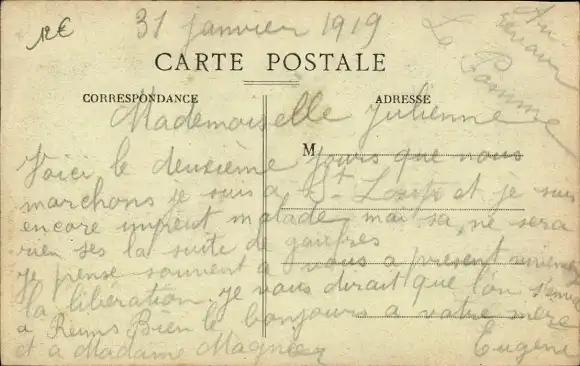 12€
31 janvier 1919
CARTE POSTALE
CORRESPONDANCE
ADRESSE
Mademoiselle Julienne
M
Voici le deuxième jours que nous
marchons je suis a St Loup et je suis
encore unpeut malade mai sa ne sera
rien ses la suite de
je pense souvent a vous a present
la libération je vous dirait que l'on
a Reims Bien le bonjours a votre mère
et a Madame
Eugène
La Pomme